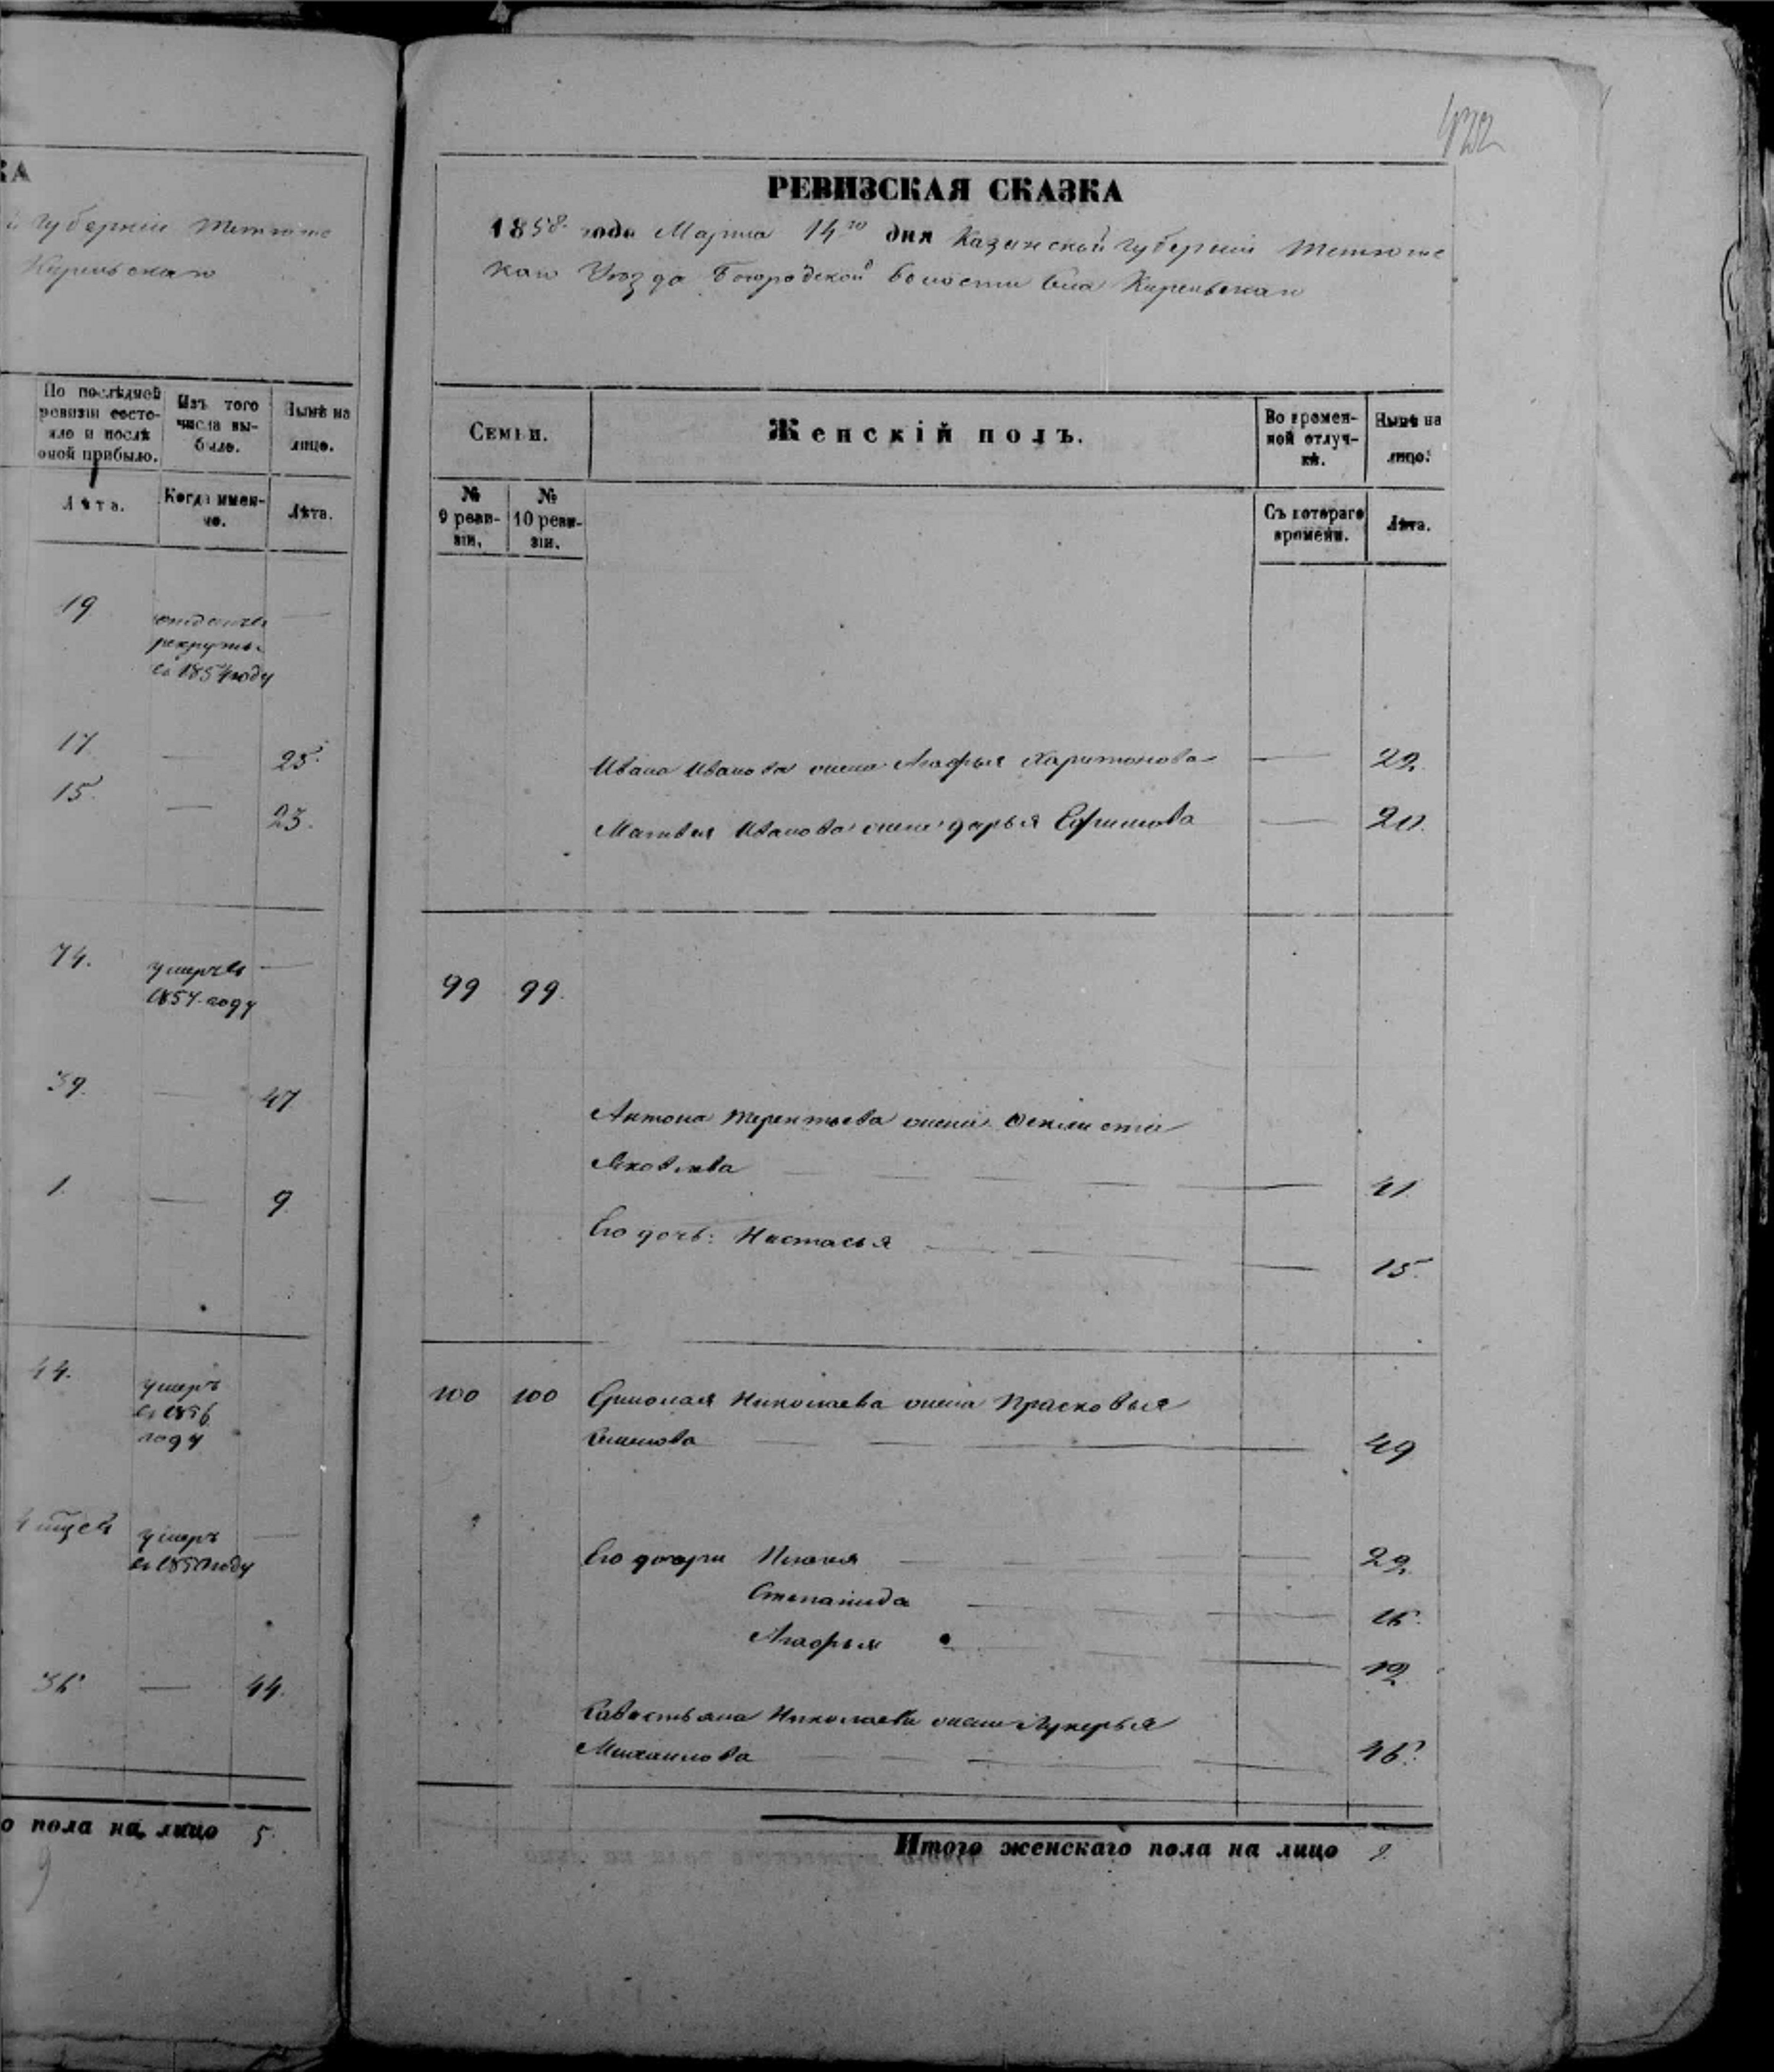 КА
губерніи Тетюшс
Кирельскаго
По послѣдней ревизіи состо-
яло и послѣ
оной прибыло.
Изъ того
числа вы-
было.
Нынѣ на
лицо.
Лѣта.
Когда имен-
но.
Лѣта.
19 отданъ въ —
рекруты
въ 1854 году
17 — 25.
15. — 23.
74. умеръ въ —
1857 году
39. — 47
1. — 9
44. умеръ
въ 1856
году
умеръ —
36 — 44.
о пола на лицо 5.
9
РЕВИЗСКАЯ СКАЗКА
1858 года Марта 14го дня Казанской губерніи Тетюшс
каго Уѣзда Богородской волости Села Кирельскаго
Семьи.
Женскій полъ.
Во времен-
ной отлуч-
кѣ.
Нынѣ на
лицо.
№
9 реви-
зіи.
№
10 реви-
зіи.
Съ котораго
времени.
Лѣта.
Ивана Иванова жена Агафья Харитонова — 22.
Матвея Иванова жена дарья Ефимова — 20.
99 99.
Антона Терентьева жена Феклиста
Яковлева — 41.
Его дочь: Настасья — 15.
100 100 Ермолая Николаева жена Прасковья
Семенова — 49
Его дочери — 22.
Степанида — 16.
Агафья — 12.
Савастьяна Николаева жена Лукерья
Михаилова — 46.
Итого женскаго пола на лицо 9.